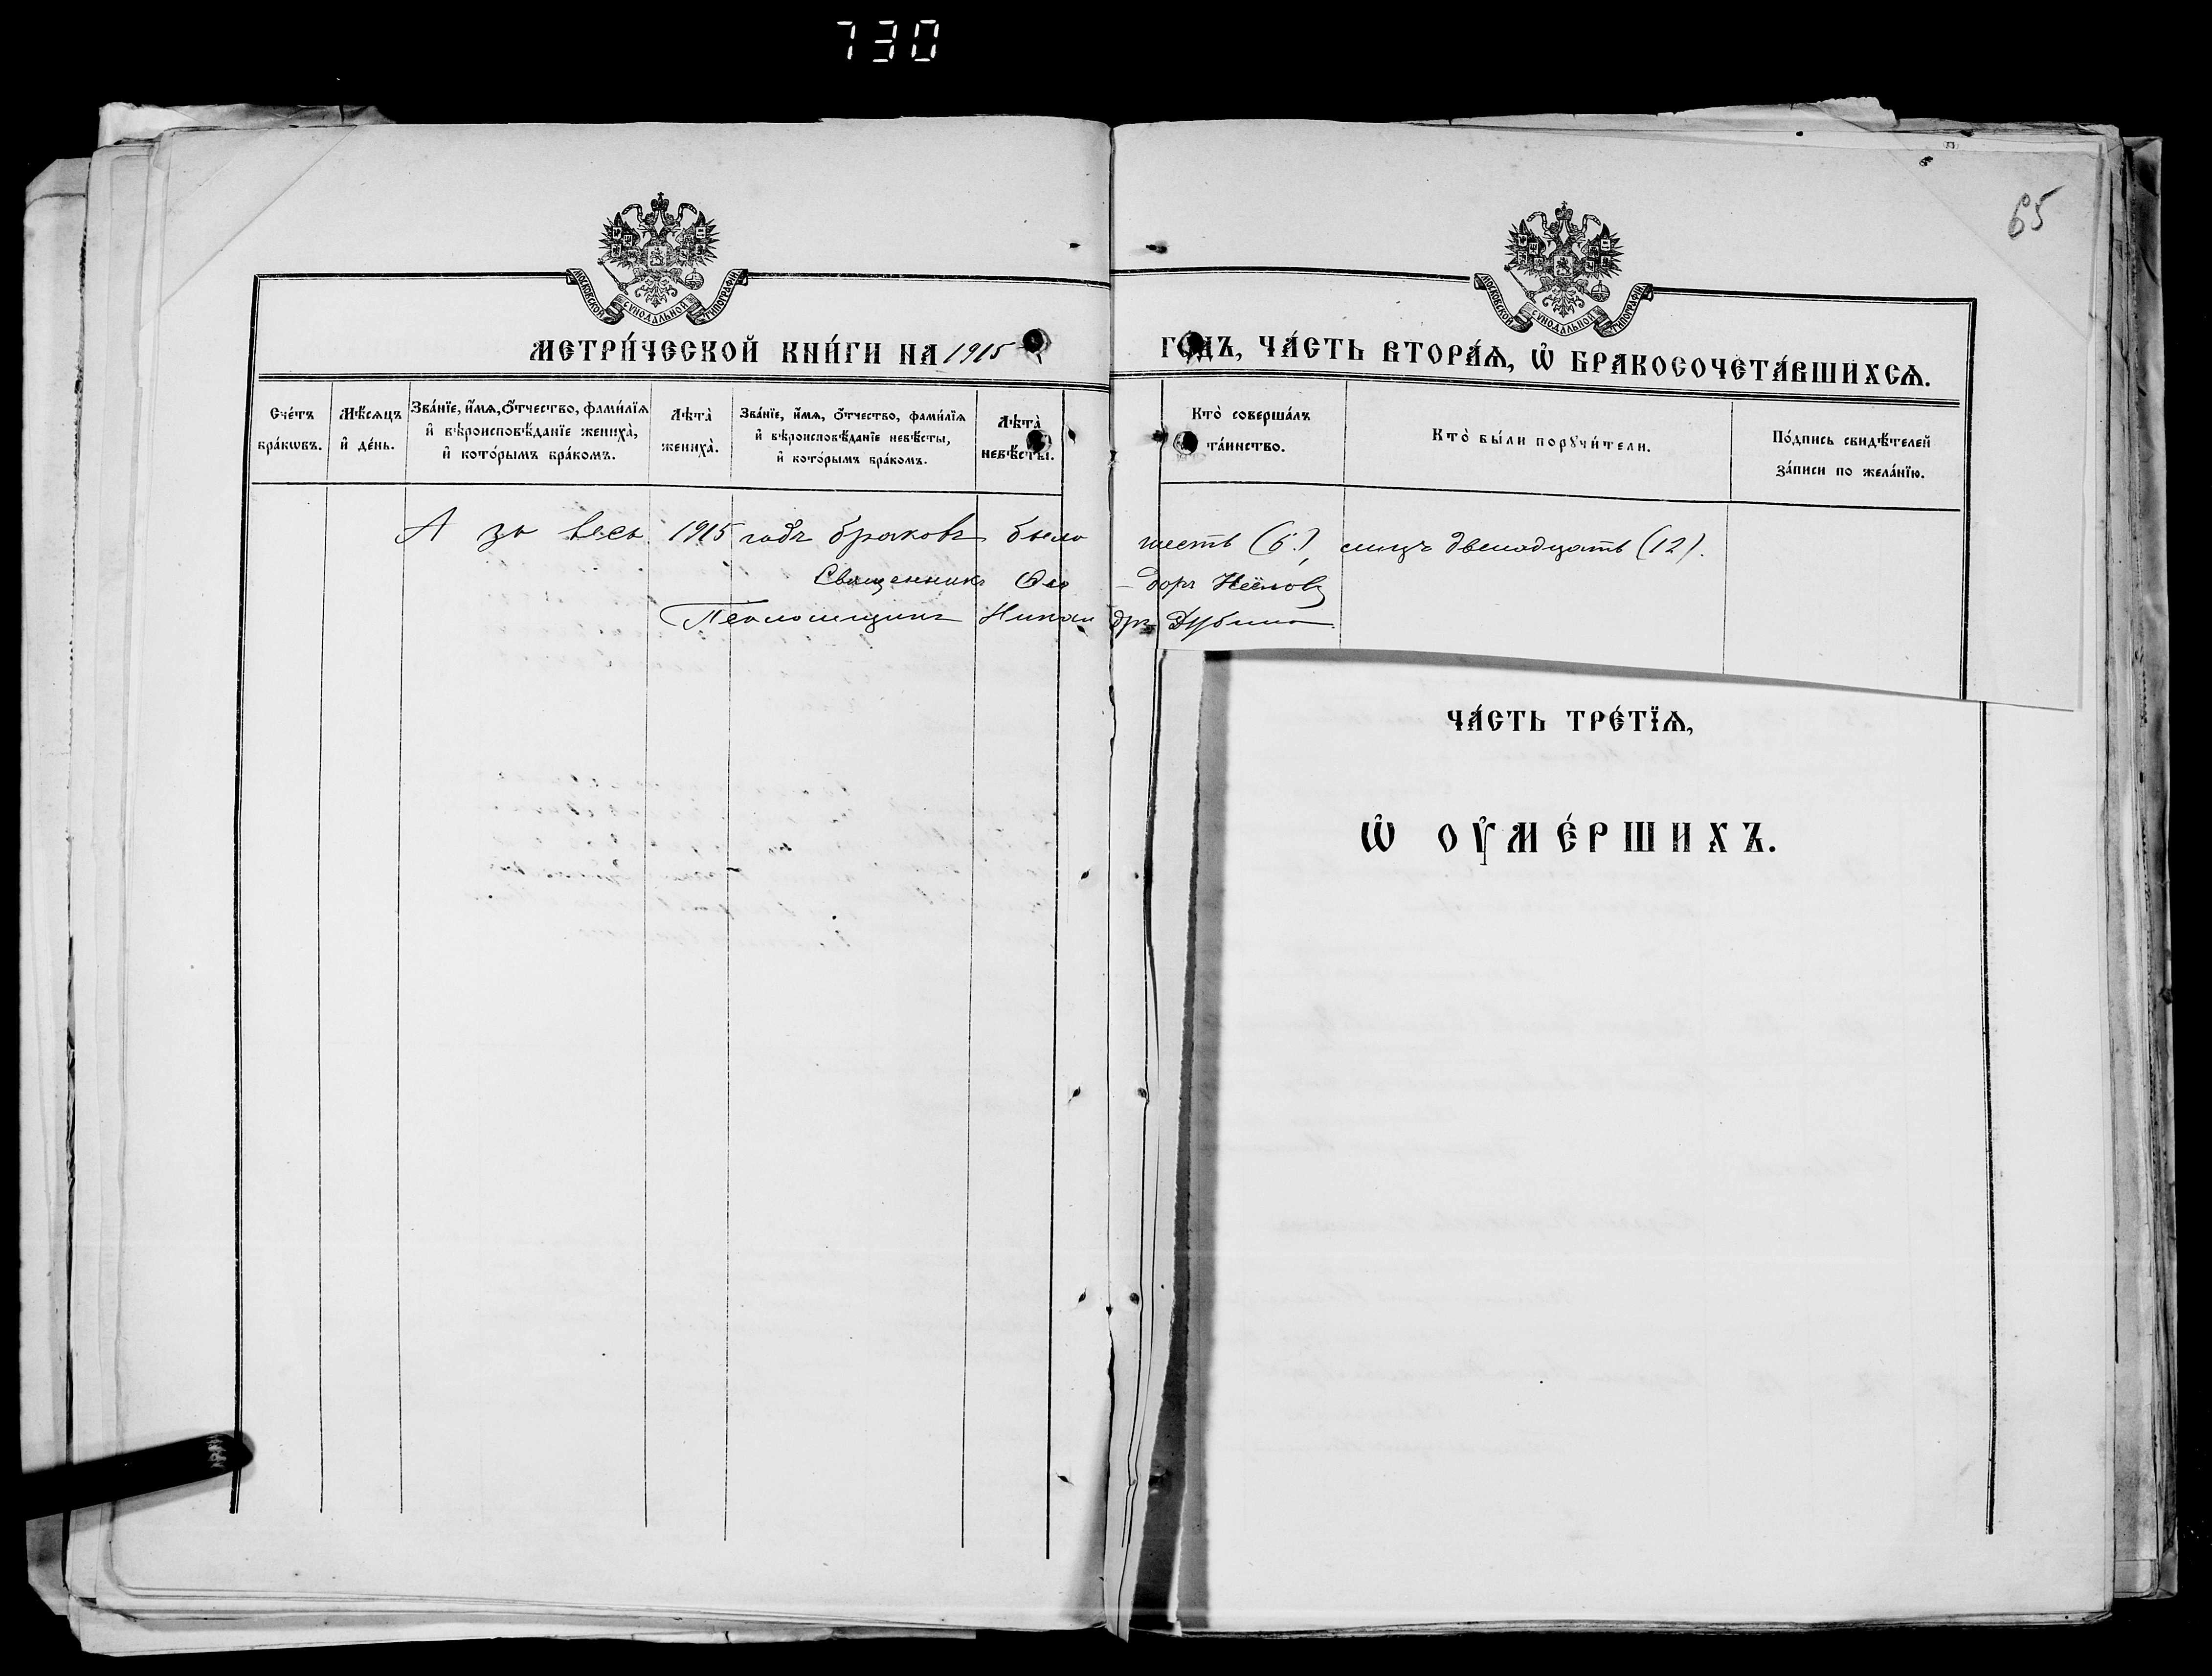 730
65
МОСКОВСКОЙ СѴНОДАЛЬНОЙ ТИПОГРАФІИ
МОСКОВСКОЙ СѴНОДАЛЬНОЙ ТИПОГРАФІИ
МЕТРИ́ЧЕСКОЙ КНИ́ГИ НА 1915 ГО́ДЪ, ЧА́СТЬ ВТОРА́Ѧ, Ѡ҆ БРАКОСОЧЕТА́ВШИХСѦ.
Сче́тъ бра́кѡвъ.
Мѣ́сѧцъ и҆ де́нь.
Зва́нїе, и҆́мѧ, ѻ҆́тчество, фами́лїѧ и҆ вѣроисповѣ́данїе жениха̀, и҆ кото́рымъ бра́комъ.
Лѣта̀ жениха̀.
Зва́нїе, и҆́мѧ, ѻ҆́тчество, фами́лїѧ и҆ вѣроисповѣ́данїе невѣ́сты, и҆ кото́рымъ бра́комъ.
Лѣта̀ невѣ́сты.
Кто̀ соверша́лъ та́инство.
Кто̀ бы́ли порꙋчи́тели.
По́дпись свидѣ́телей за́писи по жела́нїю.
А за весь 1915 годъ браковъ было шесть (6), лицъ двенадцать (12).
Священникъ Ѳеодоръ
Псаломщикъ Никандръ Дубина
ЧА́СТЬ ТРЕ́ТЇѦ,
Ѡ҆ ОУ҆МЕ́РШИХЪ.